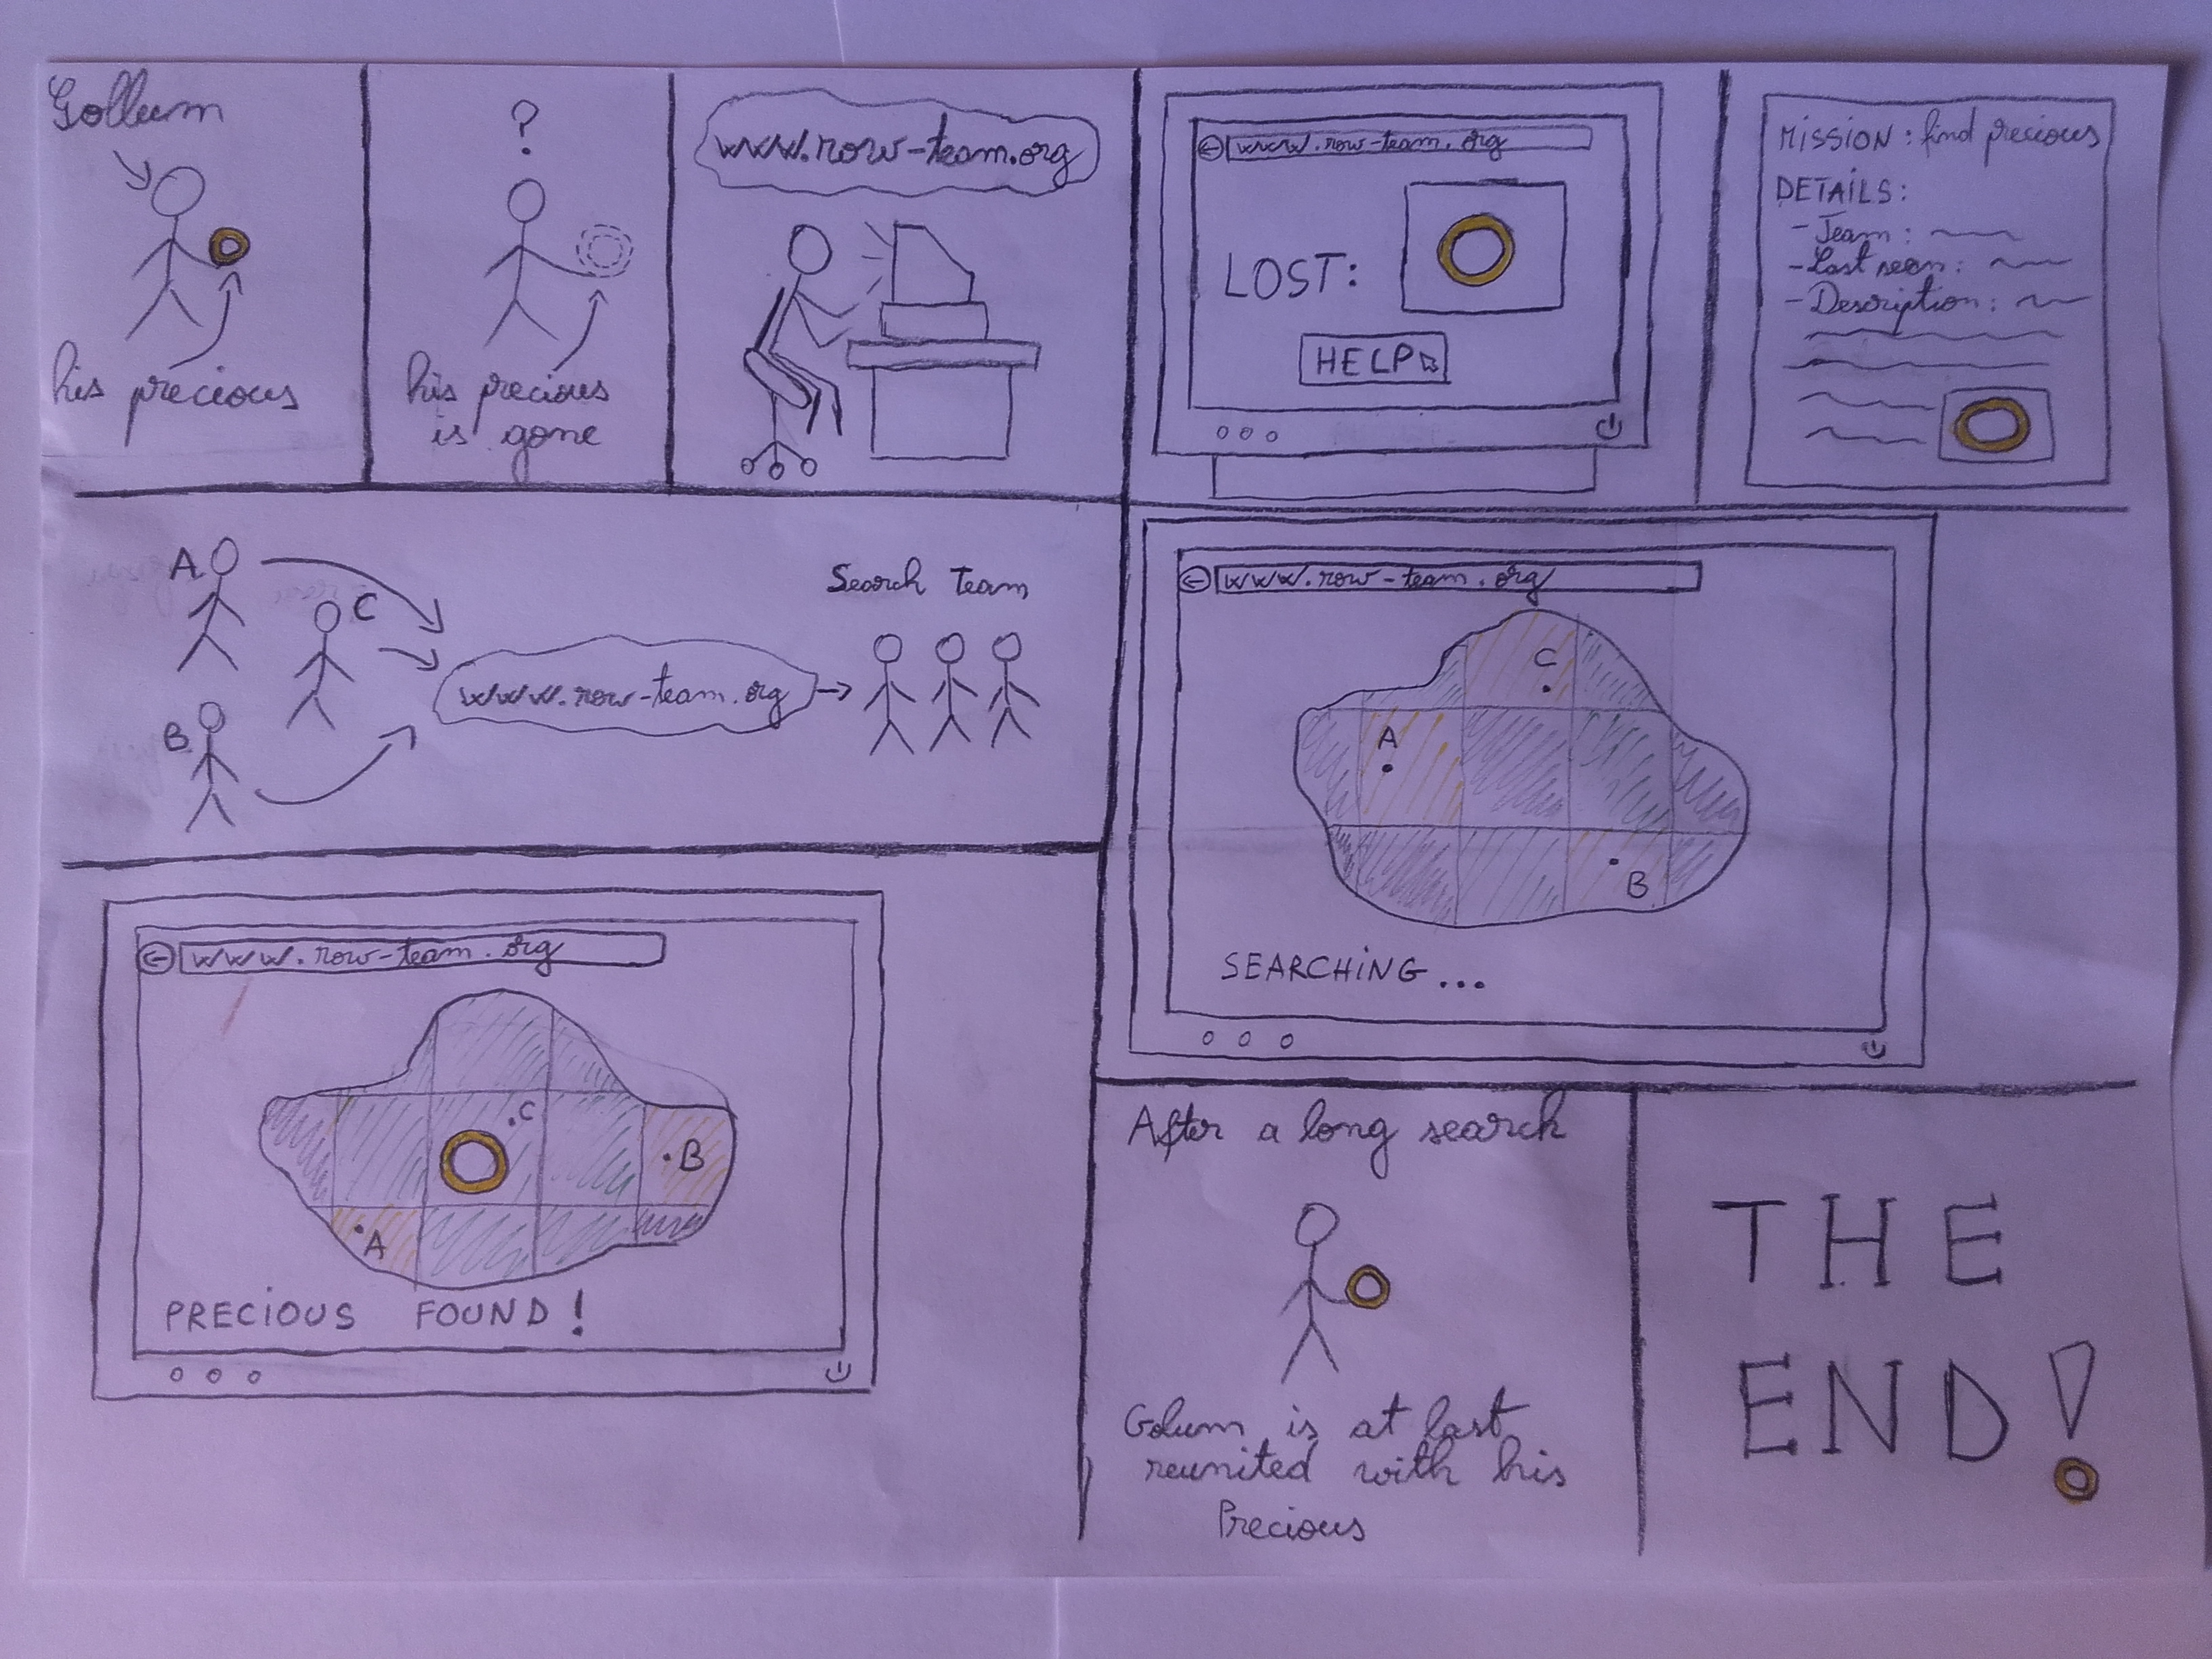 Gollum
his precious
?
his precious
is gone
www.row-team.org
www.row-team.org
LOST:
HELP
MISSION: find precious
DETAILS:
- Team:
- Last seen:
- Description:
A
C
B
www.row-team.org
Search Team
www.row-team.org
C
A
B
SEARCHING...
www.row-team.org
C
B
A
PRECIOUS FOUND!
After a long search
Golum is at last
reunited with his
Precious
THE
END!